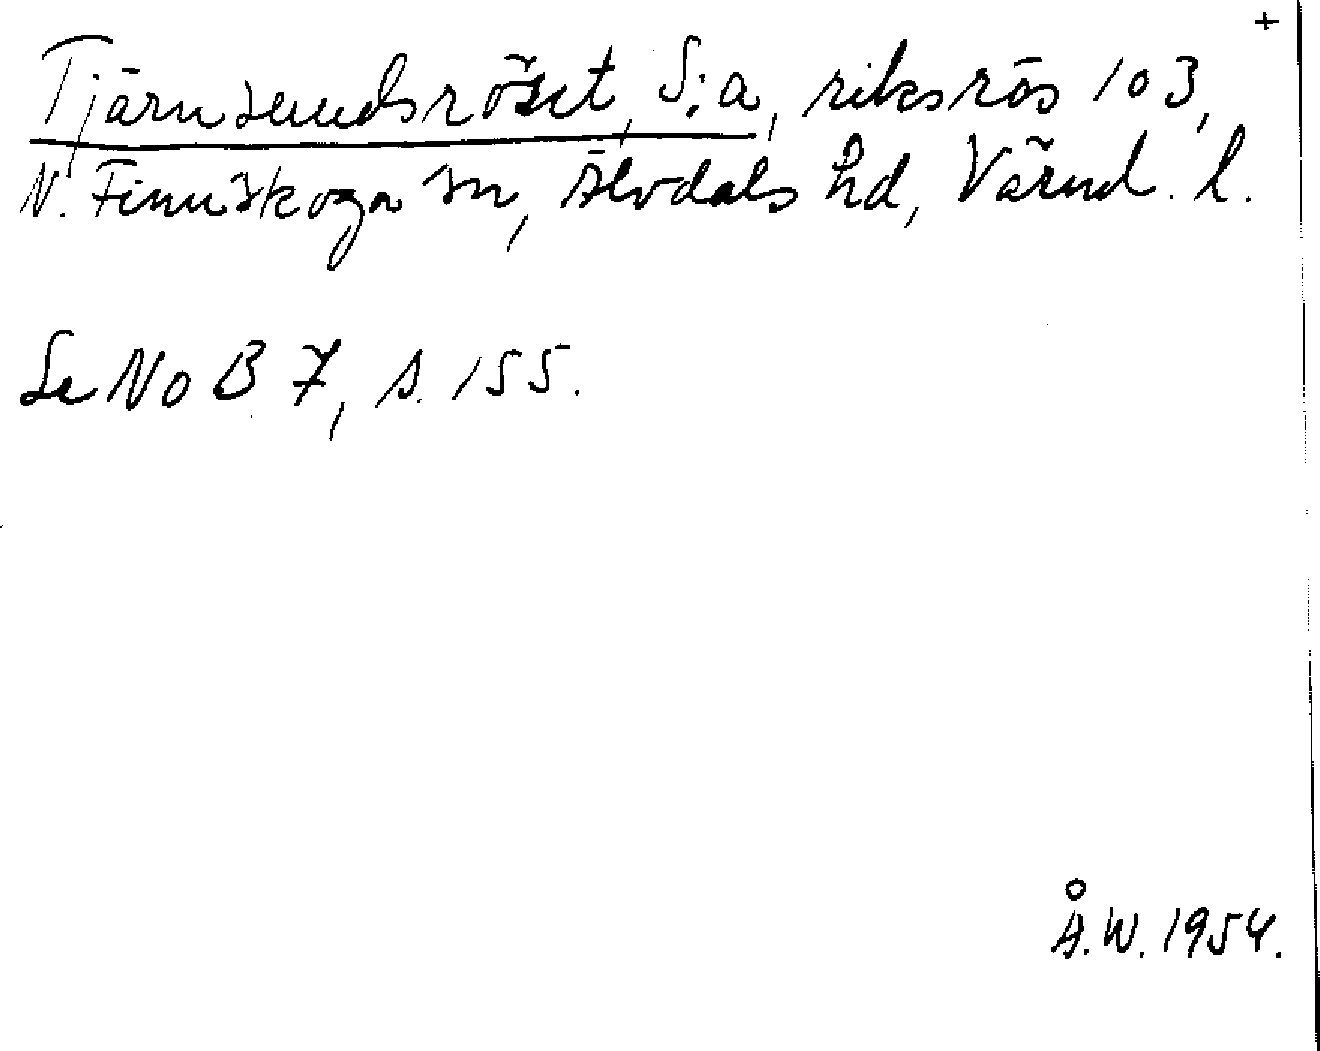 +
Tjärnsundsröset, S:a, riksrös 103,
N. Finnskoga sn, Älvdals hd, Värml. l.
Se NoB 7, s. 155.
Å.W. 1954.